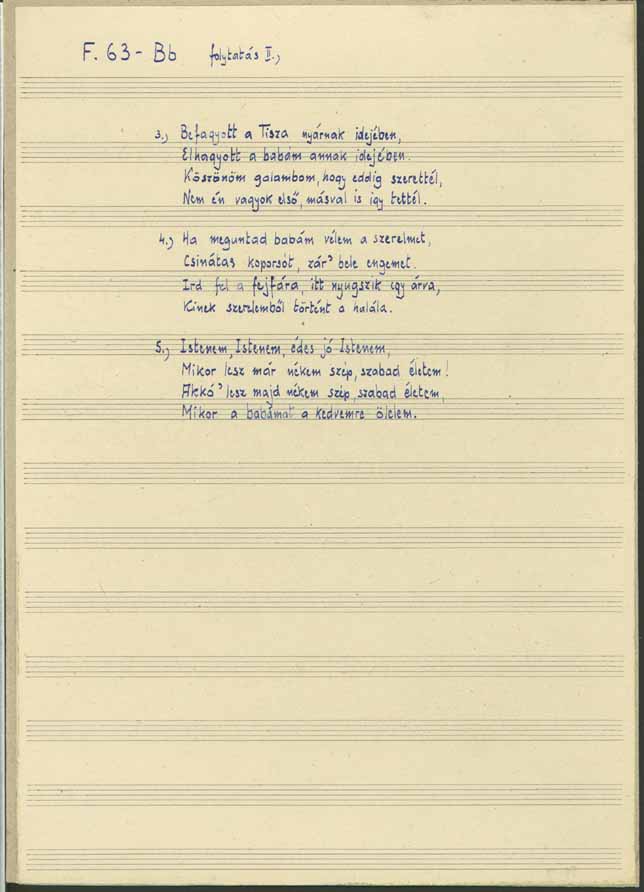 F. 63 - Bb folytatás II.,
3.) Befagyott a Tisza nyárnak idejében,
Elhagyott a babám annak idejében.
Köszönöm galambom, hogy eddig szerettél,
Nem én vagyok első, másval is így tettél.
4.) Ha meguntad babám vélem a szerelmet,
Csinátas koporsót, zár' bele engemet.
Ird fel a fejfára, itt nyugszik egy árva,
Kinek szerelemből történt a halála.
5.) Istenem, Istenem, édes jó Istenem,
Mikor lesz már nékem szép, szabad életem!
Akkó' lesz majd nékem szép, szabad életem,
Mikor a babámat a kedvemre ölelem.